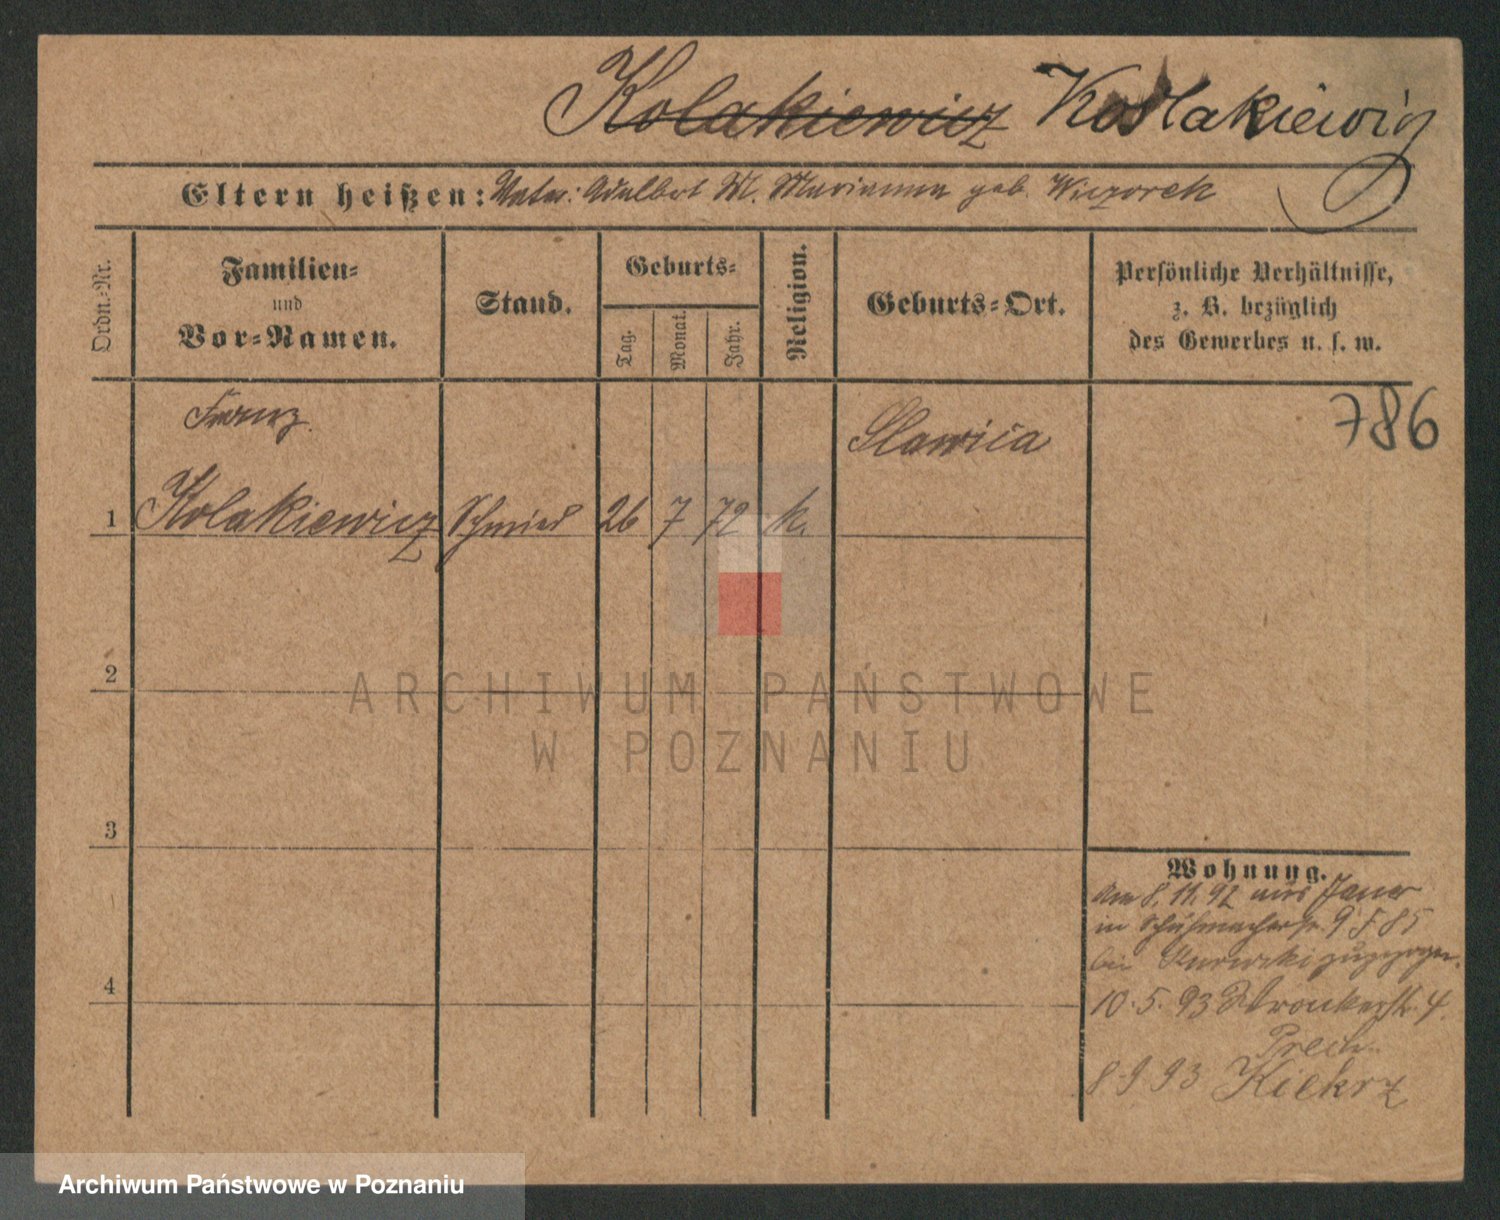 Kolakiewicz Koslakiewicz
Eltern heißen: Vater: Adalbert M. Marianna geb. Wiezorek
Ordn.-Nr.
Familien-
und
Vor-Namen.
Stand.
Geburts-
Tag.
Monat.
Jahr.
Religion.
Geburts-Ort.
Persönliche Verhältnisse,
z. B. bezüglich
des Gewerbes u. s. w.
786
Franz
Slawica
1 Kolakiewicz Schmied 26 7 72 k.
2
3
4
Wohnung.
Am 8. 11. 92 aus Jauer
in Schuhmacherstr. 9 F 85
bei zugezogen.
10. 5. 93 Wronkerstr. 4.
8 9 93 Kiekrz
ARCHIWUM PAŃSTWOWE
W POZNANIU
Archiwum Państwowe w Poznaniu